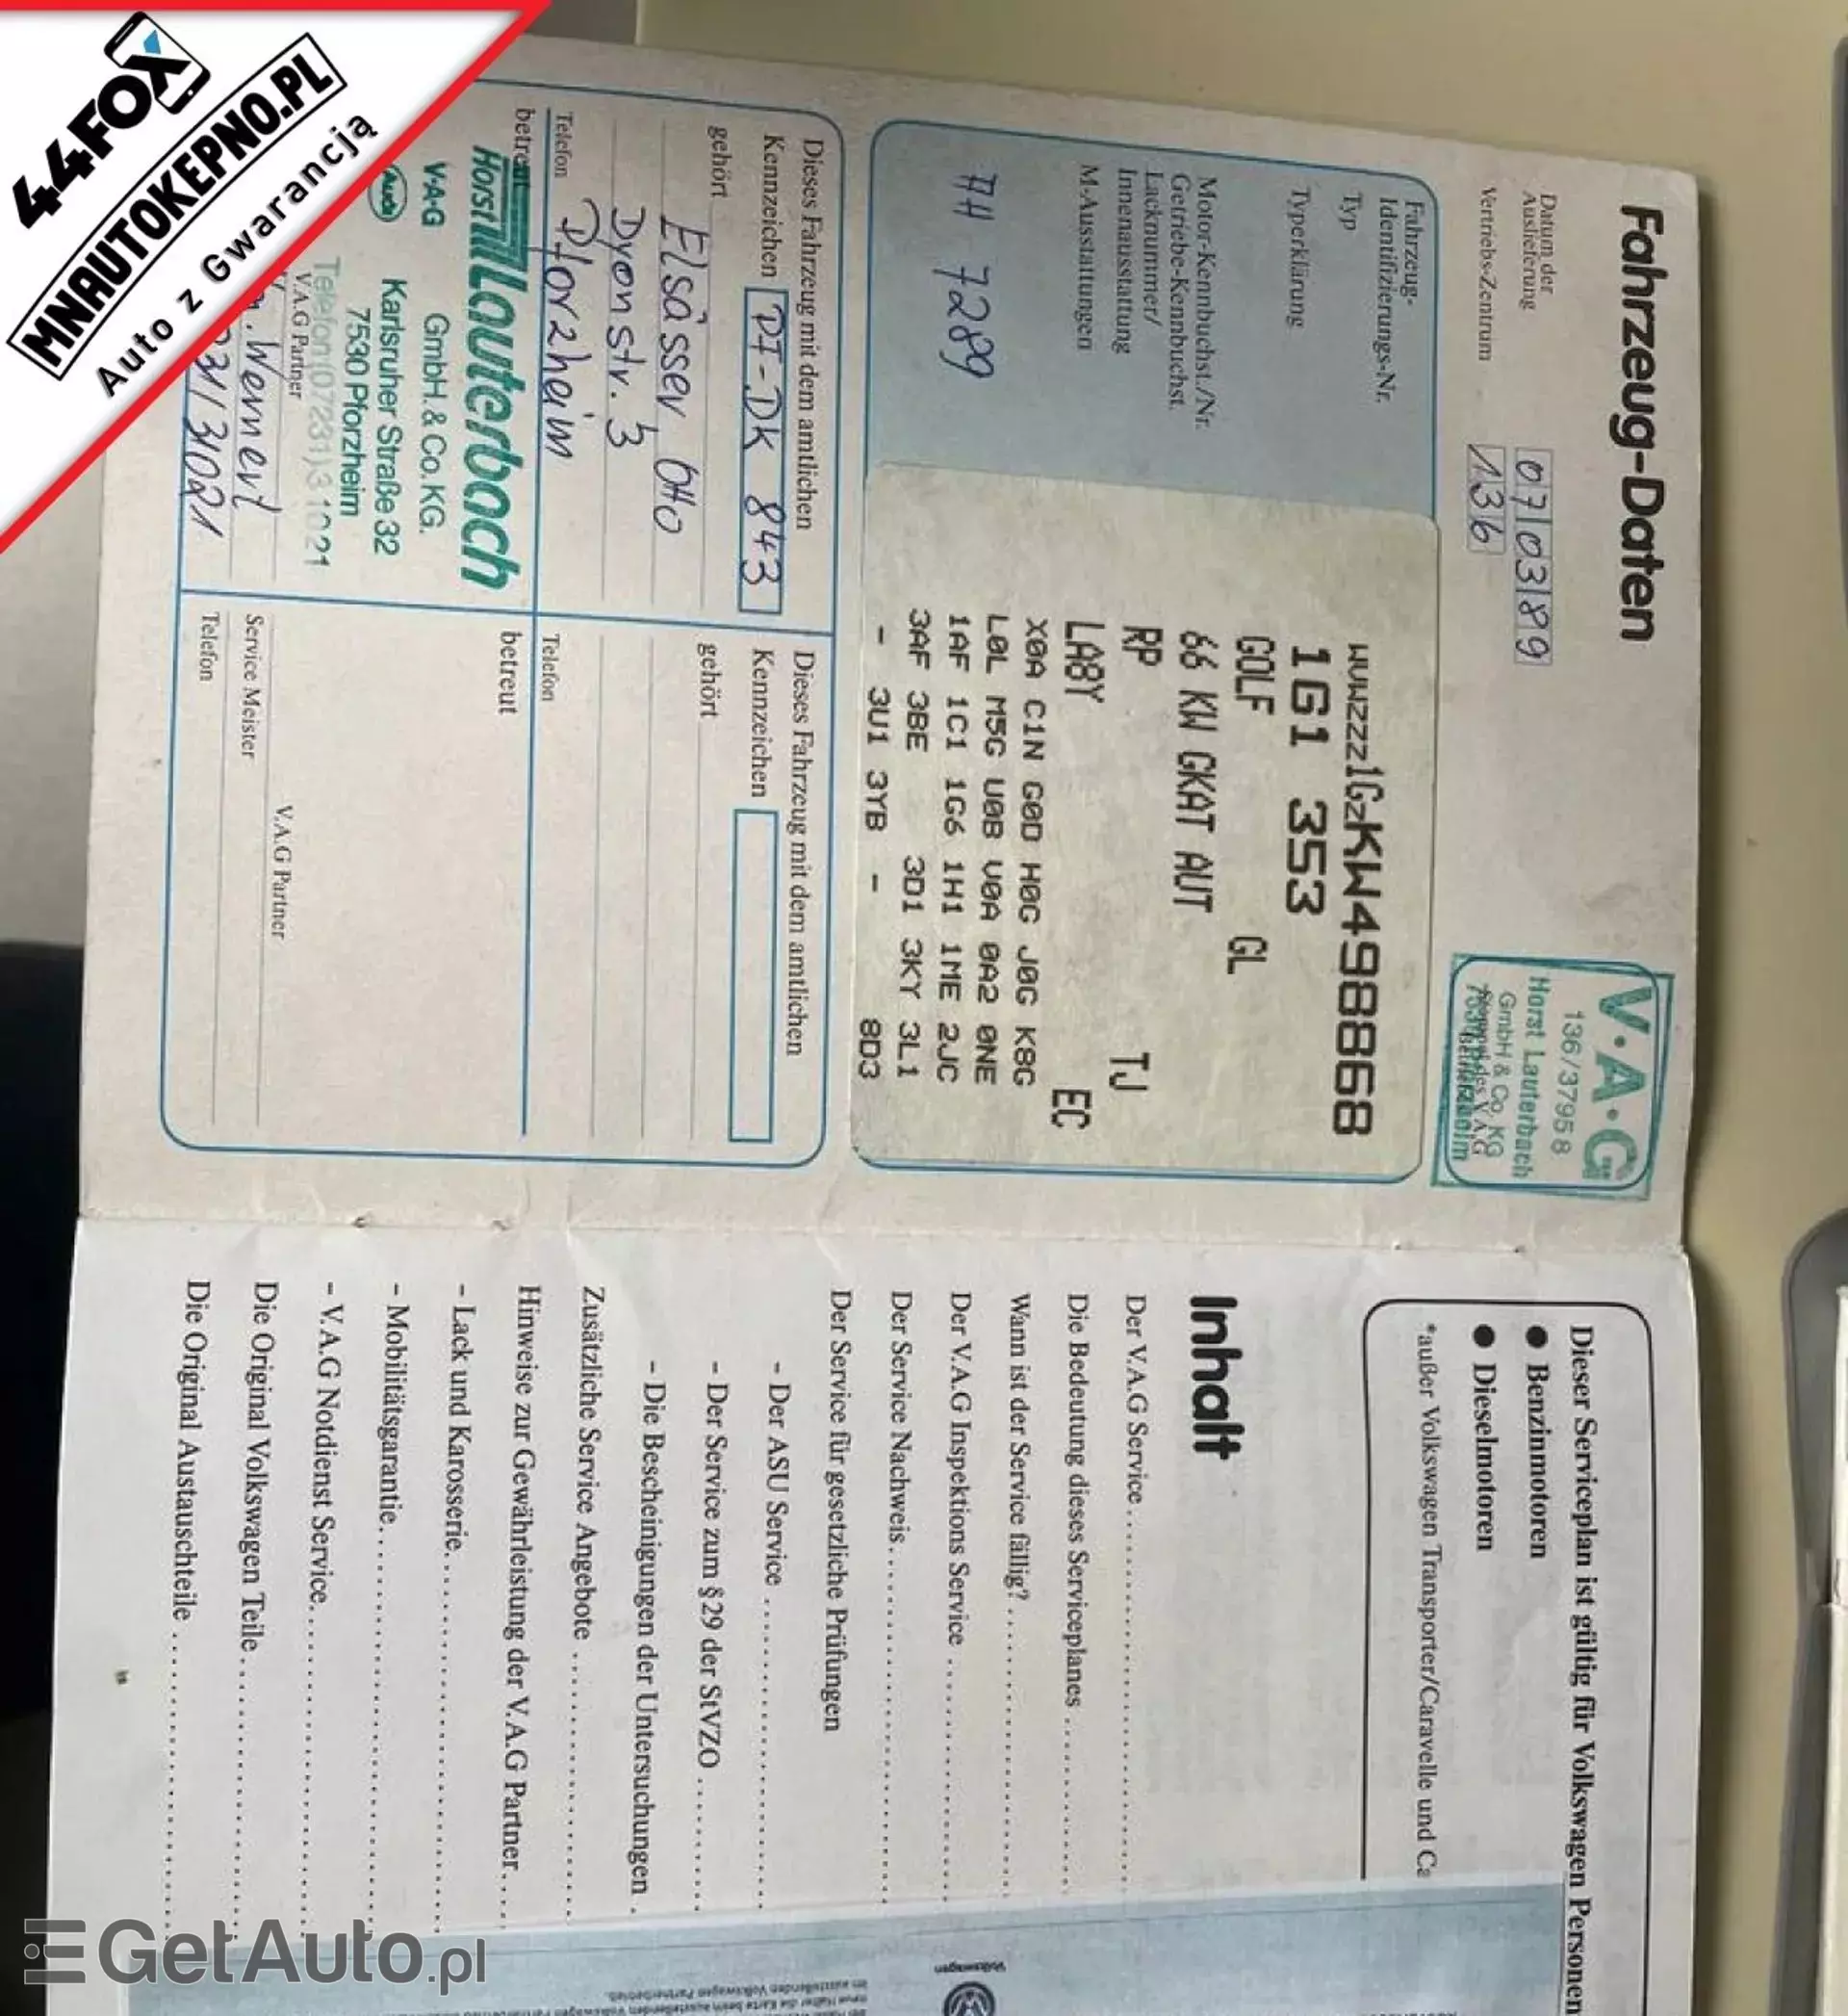 44FOX
MNAUTOKEPNO.PL
Auto z Gwarancją
Fahrzeug-Daten
Datum der
Auslieferung
07 03 89
Vertriebs-Zentrum
136
V·A·G
136/37958
Horst Lauterbach
GmbH & Co. KG
Fahrzeug-
Identifizierungs-Nr.
WVWZZZ1GZKW498868
Typ
1G1 353
Typerklärung
GOLF GL
66 KW GKAT AUT
Motor-Kennbuchst./Nr.
Getriebe-Kennbuchst.
RP TJ
Lacknummer/
Innenausstattung
LA8Y EC
M-Ausstattungen
X0A C1N G0D H0G J0G K8G
L0L M5G U0B V0A 0A2 0NE
1AF 1C1 1G6 1H1 1ME 2JC
3AF 3BE 3D1 3KY 3L1
- 3U1 3YB - 8D3
AH 7289
Dieses Fahrzeug mit dem amtlichen
Kennzeichen PF-DK 843
gehört
Elsässer, Otto
Dyonstr. 3
Pforzheim
Telefon
betreut
Horst Lauterbach
V·A·G GmbH. & Co. KG.
Audi Karlsruher Straße 32
7530 Pforzheim
Telefon (07231) 3 1021
V.A.G Partner
Wernert
31021
Dieses Fahrzeug mit dem amtlichen
Kennzeichen
gehört
Telefon
betreut
V.A.G Partner
Service Meister
Telefon
Dieser Serviceplan ist gültig für Volkswagen Personen
● Benzinmotoren
● Dieselmotoren
*außer Volkswagen Transporter/Caravelle und Ca
Inhalt
Der V.A.G Service
Die Bedeutung dieses Serviceplanes
Wann ist der Service fällig?
Der V.A.G Inspektions Service
Der Service Nachweis
Der Service für gesetzliche Prüfungen
- Der ASU Service
- Der Service zum § 29 der StVZO
- Die Bescheinigungen der Untersuchungen
Zusätzliche Service Angebote
Hinweise zur Gewährleistung der V.A.G Partner
- Lack und Karosserie
- Mobilitätsgarantie
- V.A.G Notdienst Service
Die Original Volkswagen Teile
Die Original Austauschteile
Volkswagen
GetAuto.pl